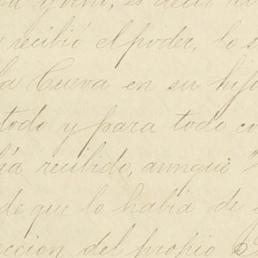 y recibió el poder, lo s
la Cueva en su hijo
todo y para todo co
ía recibido, aunque "
de que lo había de
ccion del propio